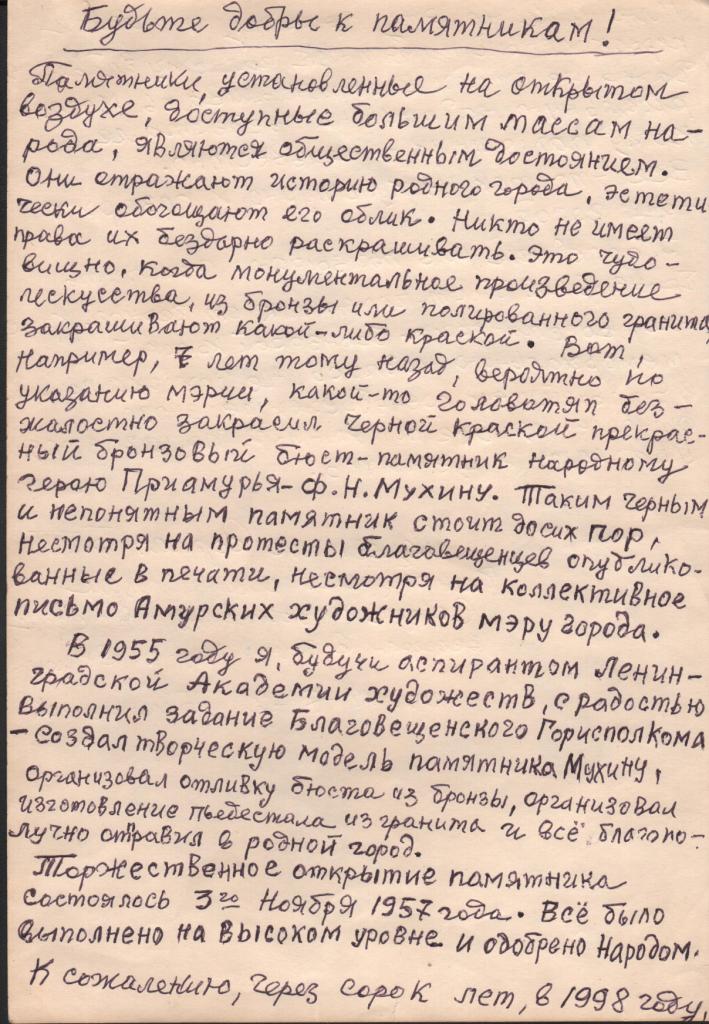 Будьте добры к памятникам!
Памятники, установленные на открытом
воздухе, доступные большим массам на-
рода, являются общественным достоянием.
Они отражают историю родного города, эстети
чески обогощают его облик. Никто не имеет
права их бездарно раскрашивать. Это чудо-
вищно, когда монументальное произведение
искусства, из бронзы или полированного гранита,
закрашивают какой-либо краской. Вот,
например, 7 лет тому назад, вероятно по
указанию мэрии, какой-то головотяп без-
жалостно закрасил черной краской прекрас-
ный бронзовый бюст-памятник народному
герою Приамурья-Ф.Н.Мухину. Таким черным
и непонятным памятник стоит досих пор,
несмотря на протесты благовещенцев опублико-
ванные в печати, несмотря на коллективное
письмо Амурских художников мэру города.
В 1955 году я, будучи аспирантом Ленин-
градской Академии художеств, с радостью
выполнил задание Благовещенского Горисполкома
- создал творческую модель памятника Мухину,
организовал отливку бюста из бронзы, организовал
изготовление пьедестала из гранита и всё благопо-
лучно отправил в родной город.
Торжественное открытие памятника
состоялось 3го Ноября 1957 года. Всё было
выполнено на высоком уровне и одобрено народом.
К сожалению, через сорок лет, в 1998 году,